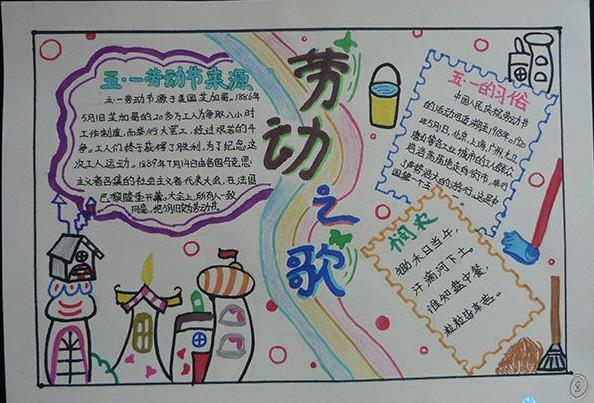 五·一劳动节来源
五·一劳动节源于美国芝加哥。1886年
5月1日芝加哥的20多万工人为争取八小时
工作制度,而举行大罢工,经过艰苦的斗
争。工人们终于获得了胜利,为了纪念这
次工人运动。1889年7月14日由各国马克思
主义者召集的社会主义者代表大会,在法国
巴黎隆重开幕。大会上,所有人一致
同意,把5月1日定为劳动节。
劳动之歌
五·一的习俗
中国人民庆祝劳动节
的活动可追溯至1918年。1920
年5月1日,北京,上海,广州,九江
唐山等各工业城市的工人群众
浩浩荡荡走向街市,举行
了声势浩大的游行,这是中
国第一个五一
悯农
锄禾日当午,
汗滴禾下土。
谁知盘中餐,
粒粒皆辛苦。
8